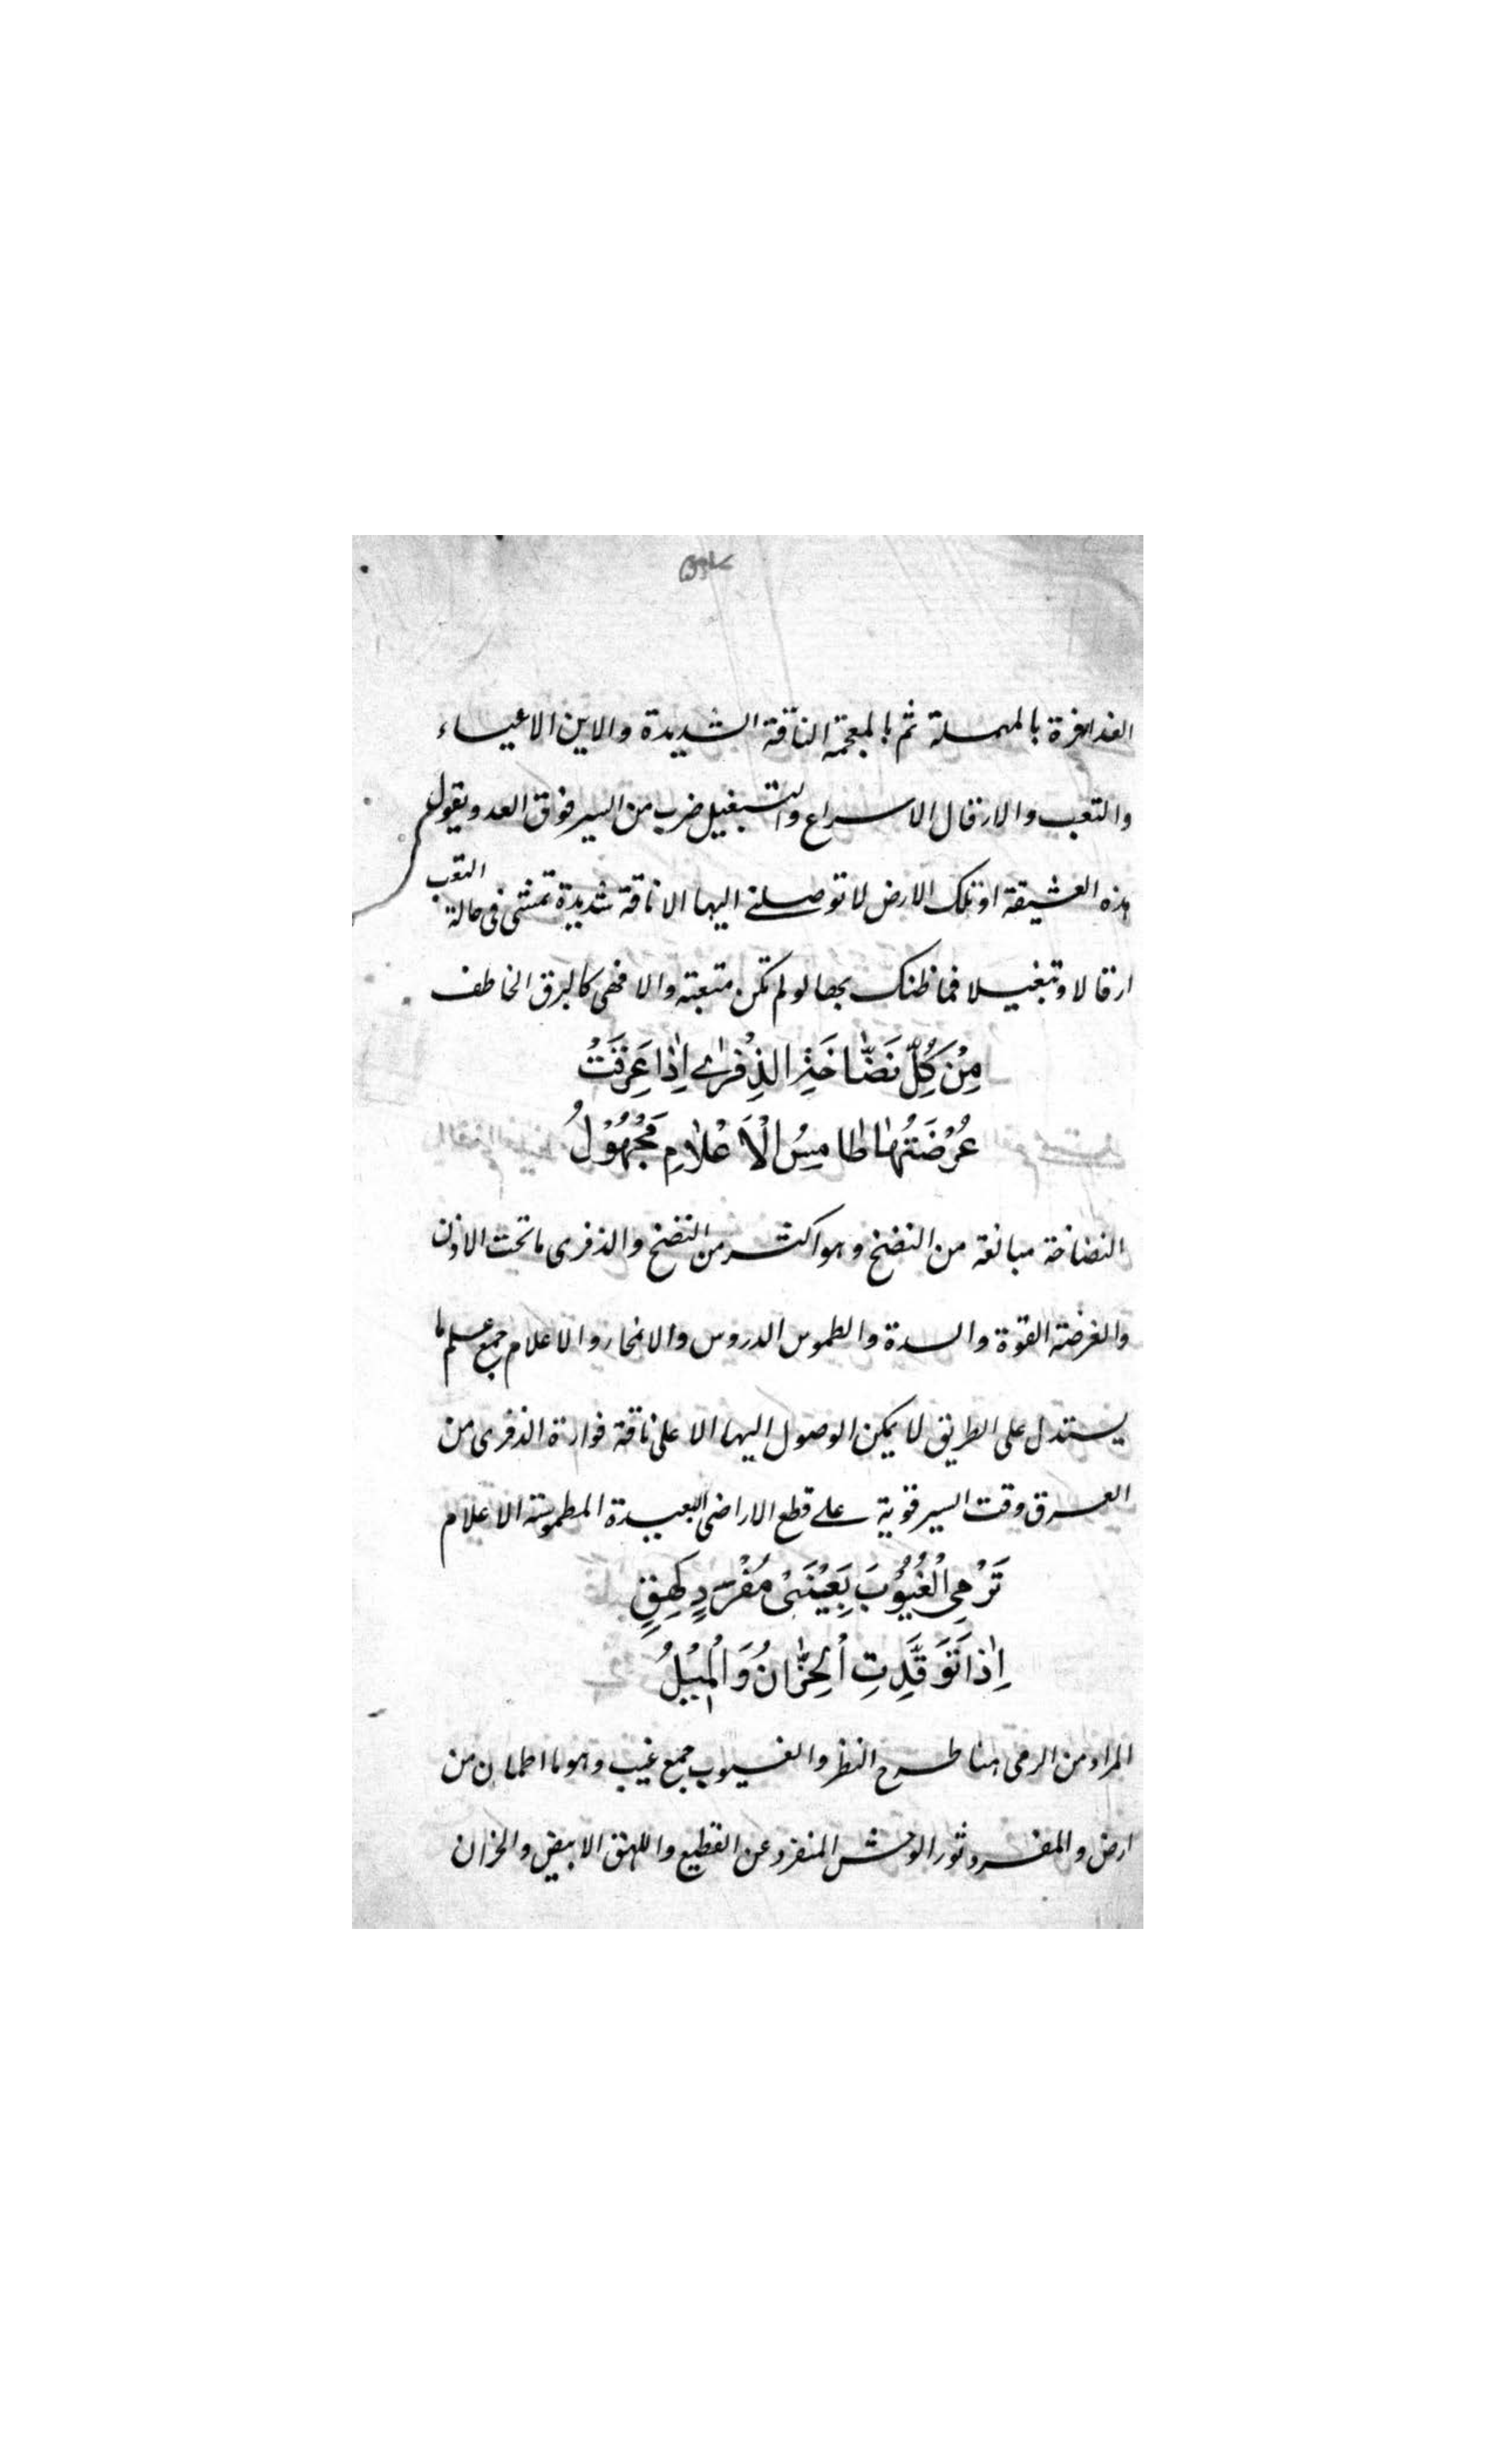 العذافرة بالمهملة ثم بالمعجمة الناقة الشديدة والاين الاعياء
والتعب والارقال الاسراع والتبغيل ضرب من السير فوق العدو يقول
هذه العشيقة او تلك الارض لا توصلنے اليها الا ناقة شديدة تمشى فى حالة التعب
ارقالا وتبغيلا فما ظنك بها لو لم تكن متعبة والا فهى كالبرق الخاطف
مِنْ كُلِّ نَضَّاخَةِ الذِّفْرٰے اِذَا عَرِقَتْ
عُرْضَتُهَا طَامِسُ الْاَعْلَامِ مَجْهُوْلُ
النضاخة مبالغة من النضخ وهو اكثر من النضح والذفرى ما تحت الاذن
والعرضة القوة والسدة والطموس الدروس والانمحار والاعلام جمع علم ما
يستدل على الطريق لا يمكن الوصول اليها الا على ناقة فوارة الذفرى من
العرق وقت السير قوية علے قطع الاراضى البعيدة المطموسة الاعلام
تَرْمِى الْغُيُوْبَ بِعَيْنَىْ مُفْرَدٍ لَهِقٍ
اِذَا تَوَقَّدَتِ الْحِزَّانُ وَالْمِيْلُ
المراد من الرمى هنا طرح النظر والغيوب جمع غيب وهو ما اطمان من
ارض والمفرد ثور الوحش المنفرد عن القطيع واللهق الابيض والحزان